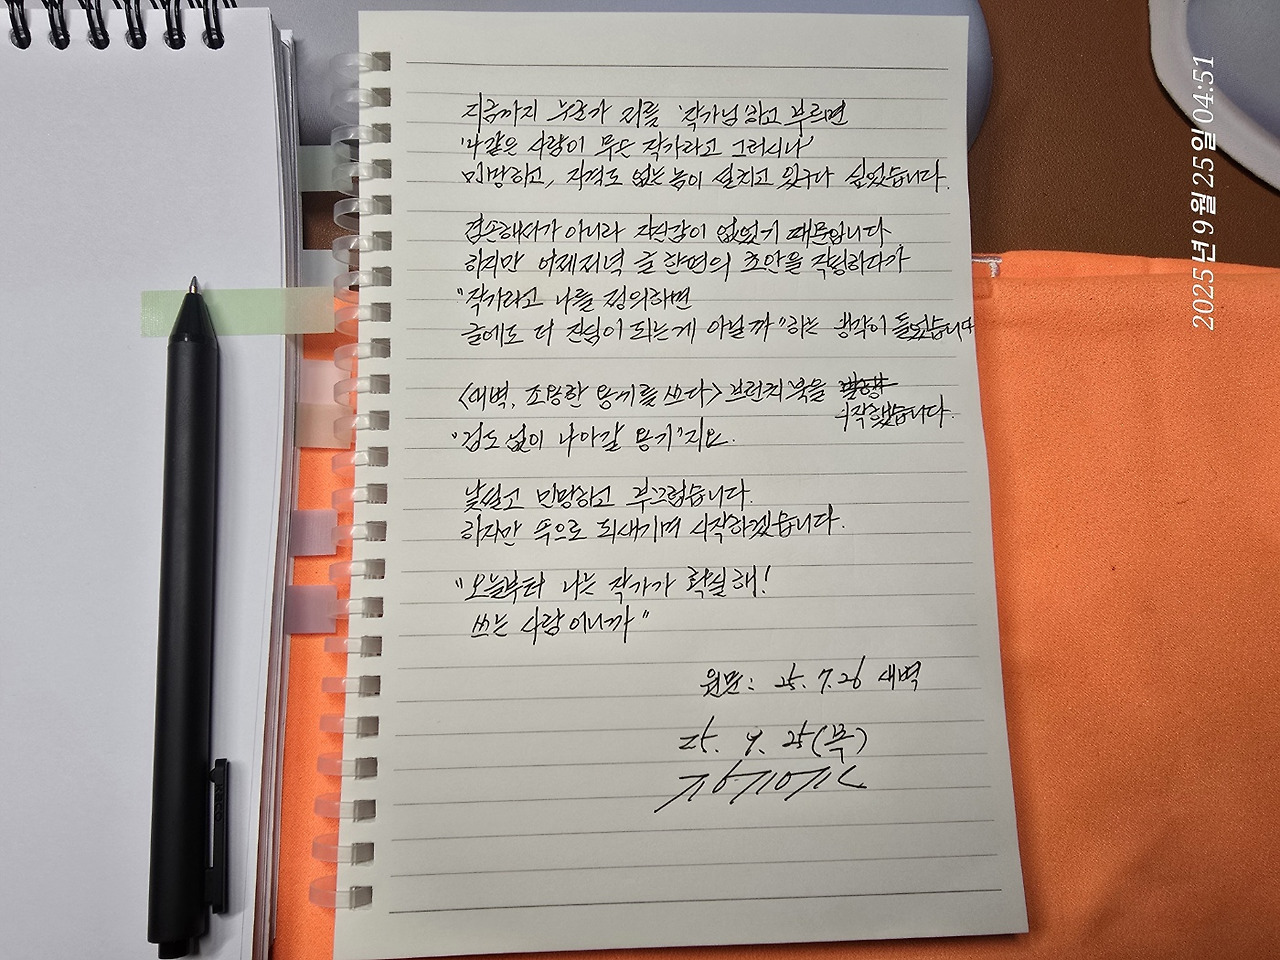 지금까지 누군가 저를 '작가님'하고 부르면
'나같은 사람이 무슨 작가라고 그러시나'
민망하고, 자격도 없는 놈이 설치고 있구나 싶었습니다.
겸손해서가 아니라 자신감이 없었기 때문입니다.
하지만 어제저녁 글 한편의 초안을 작성하다가
"작가라고 나를 정의하면
글에도 더 진심이 되는게 아닐까"하는 생각이 들었습니다
<새벽, 조용한 용기를 쓰다> 브런치북을 발행
시작했습니다.
'겁도 없이 나아갈 용기'지요.
낯설고 민망하고 부끄럽습니다.
하지만 속으로 되새기며 시작하겠습니다.
"오늘부터 나는 작가가 확실해!
쓰는 사람이니까"
원문: 25. 7. 26 새벽
25. 9. 25(목)
2025년 9월 25일 04:51